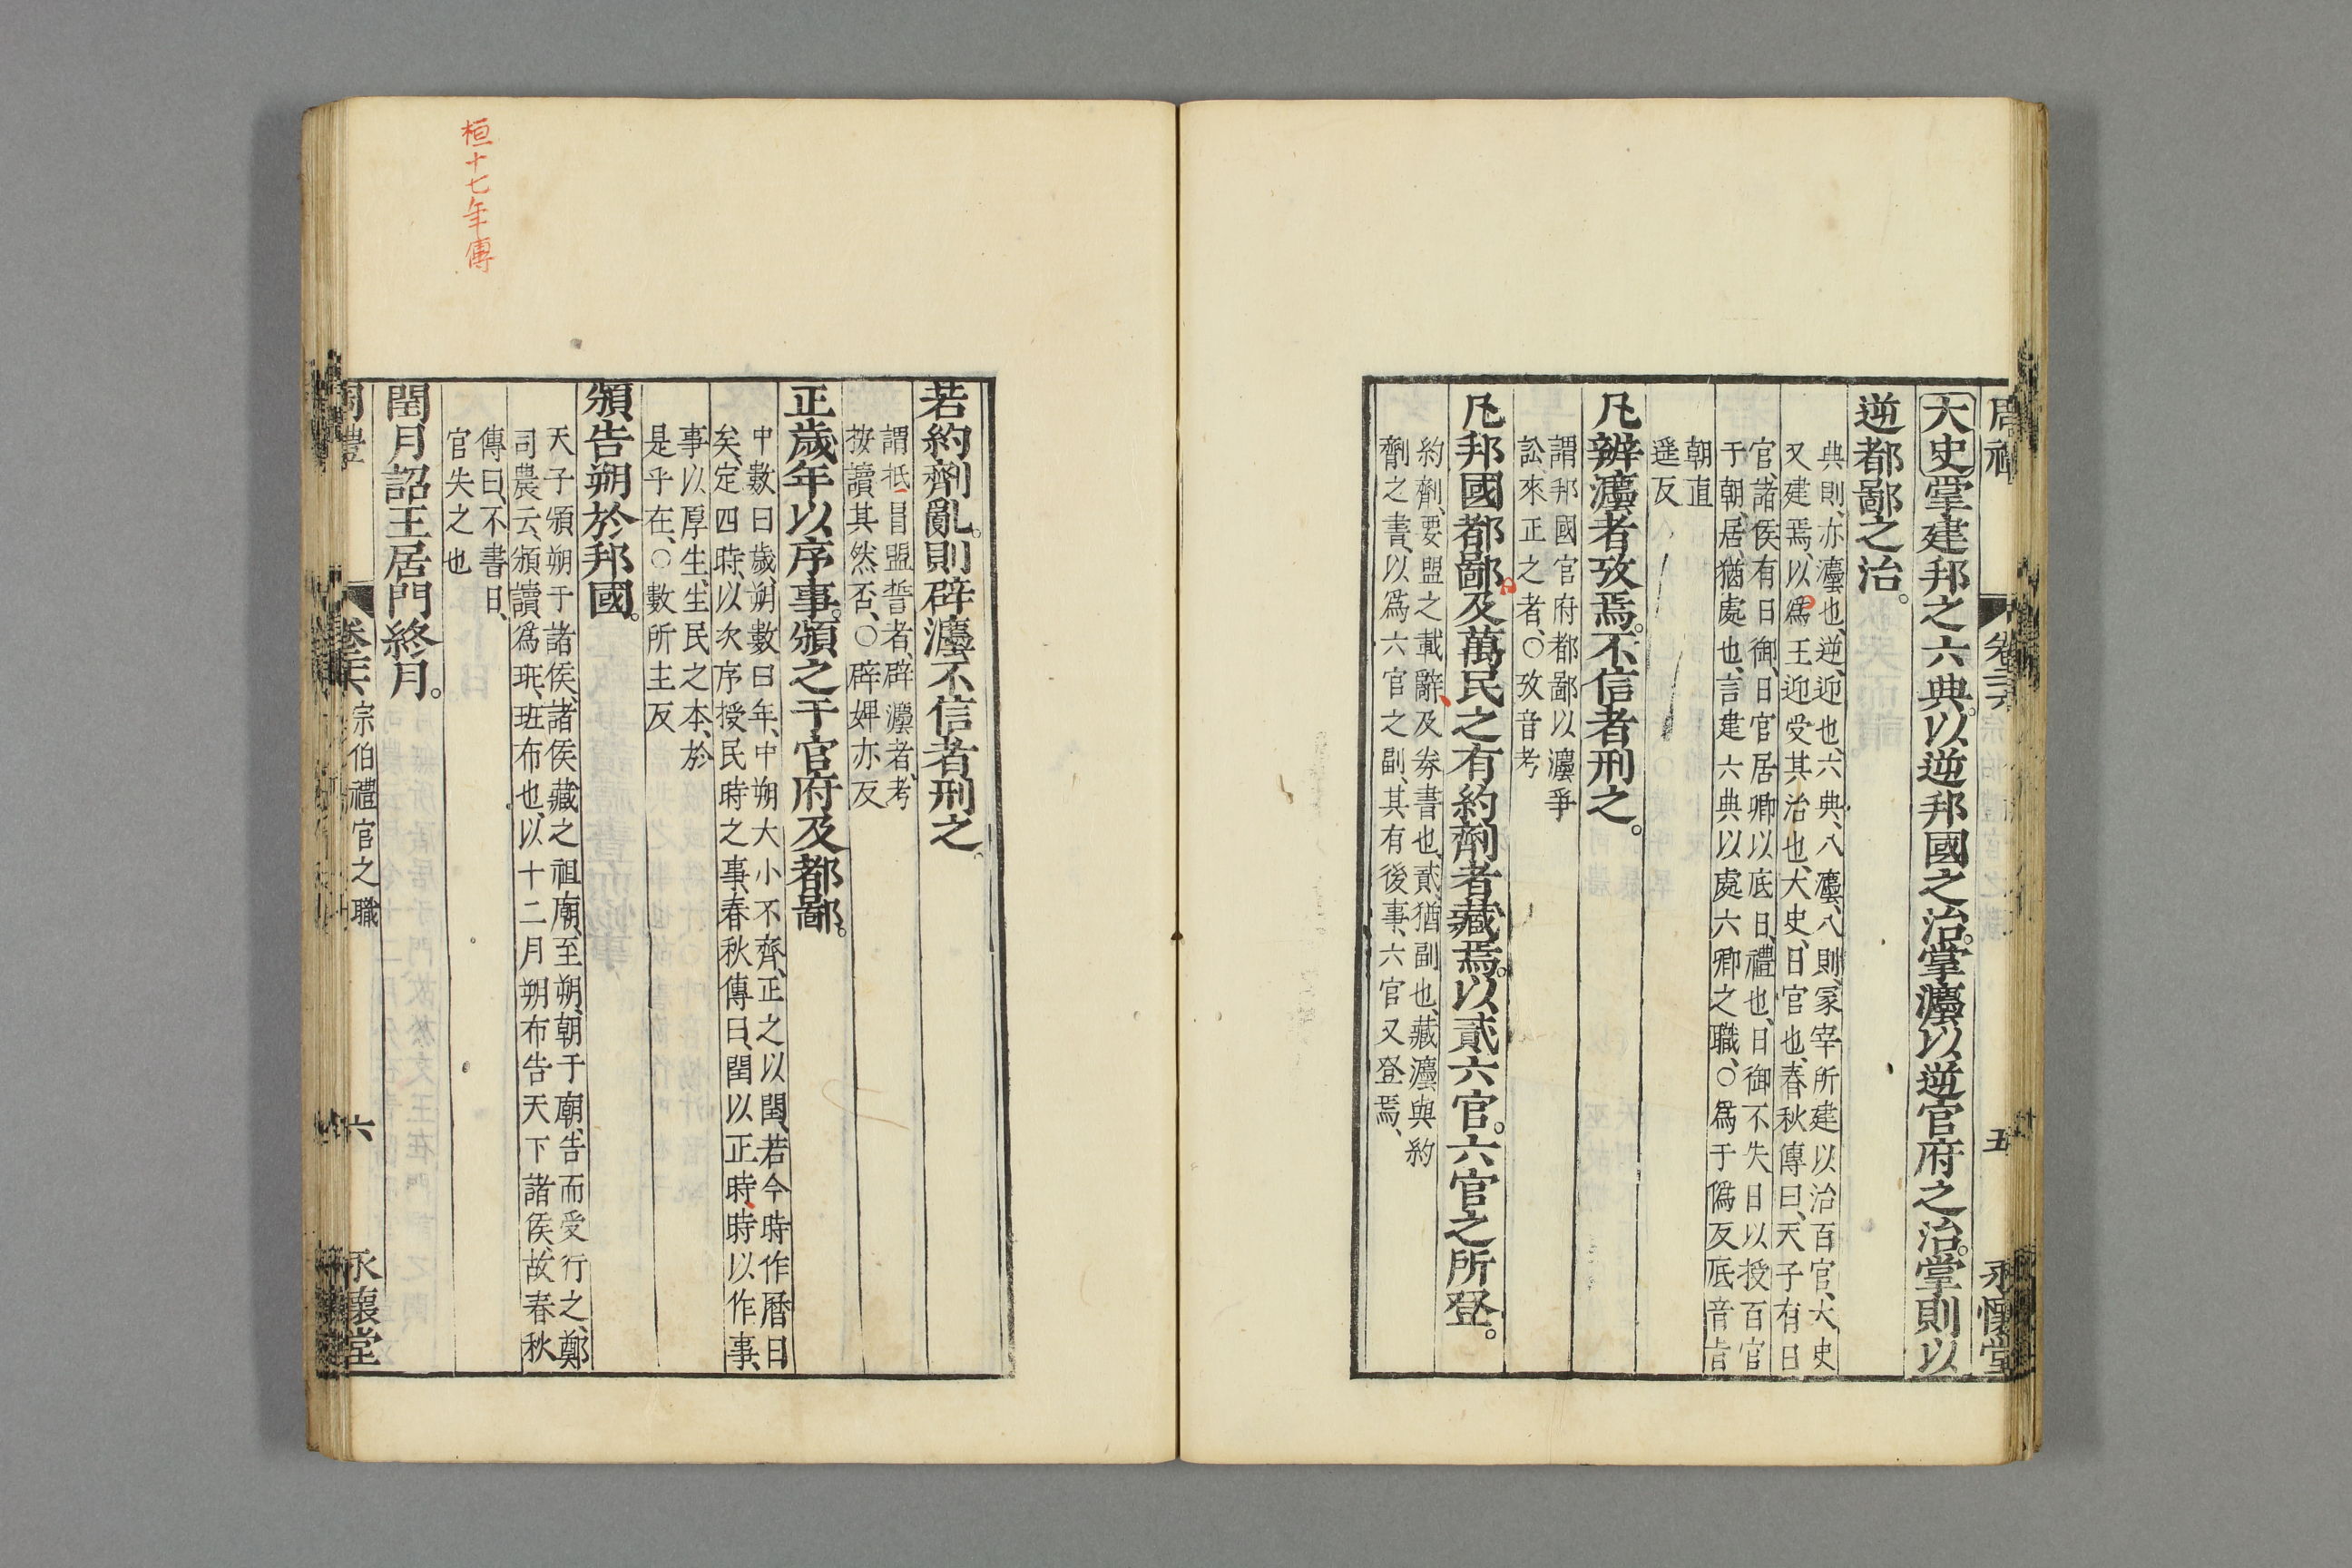 周禮 卷二六 五 永懷堂
大史掌建邦之六典。以逆邦國之治。掌灋以逆官府之治。掌則以
逆都鄙之治。
典則、亦灋也、逆、迎也、六典、八灋、八則、冢宰所建以治百官、大史
又建焉、以爲王迎受其治也、大史、日官也、春秋傳曰、天子有日
官、諸侯有日御、日官居卿以底日、禮也、日御不失日以授百官
于朝、居、猶處也、言建六典以處六卿之職、○爲于僞反底音旨
朝直
遥反
凡辨灋者攷焉。不信者刑之。
謂邦國官府都鄙以灋爭
訟、來正之者、○攷音考
凡邦國都鄙及萬民之有約劑者藏焉。以貳六官。六官之所登。
約劑、要盟之載辭及券書也、貳、猶副也、藏灋與約
劑之書、以爲六官之副、其有後事、六官又登焉、
若約劑亂。則辟灋不信者刑之。
謂抵冒盟誓者、辟灋者、考
按讀其然否、○辟婢亦反
正歲年以序事。頒之于官府及都鄙。
中數曰歲、朔數曰年、中朔大小不齊、正之以閏、若今時作曆日
矣、定四時、以次序授民時之事、春秋傳曰、閏以正時、時以作事、
事以厚生、生民之本、於
是乎在、○數所主反
頒告朔於邦國。
天子頒朔于諸侯、諸侯藏之祖廟、至朔、朝于廟、告而受行之、鄭
司農云、頒讀爲班、班、布也、以十二月朔布告天下諸侯、故春秋
傳曰、不書日、
官失之也
閏月詔王居門終月。
周禮 卷二六 宗伯禮官之職 六 永懷堂
桓十七年傳